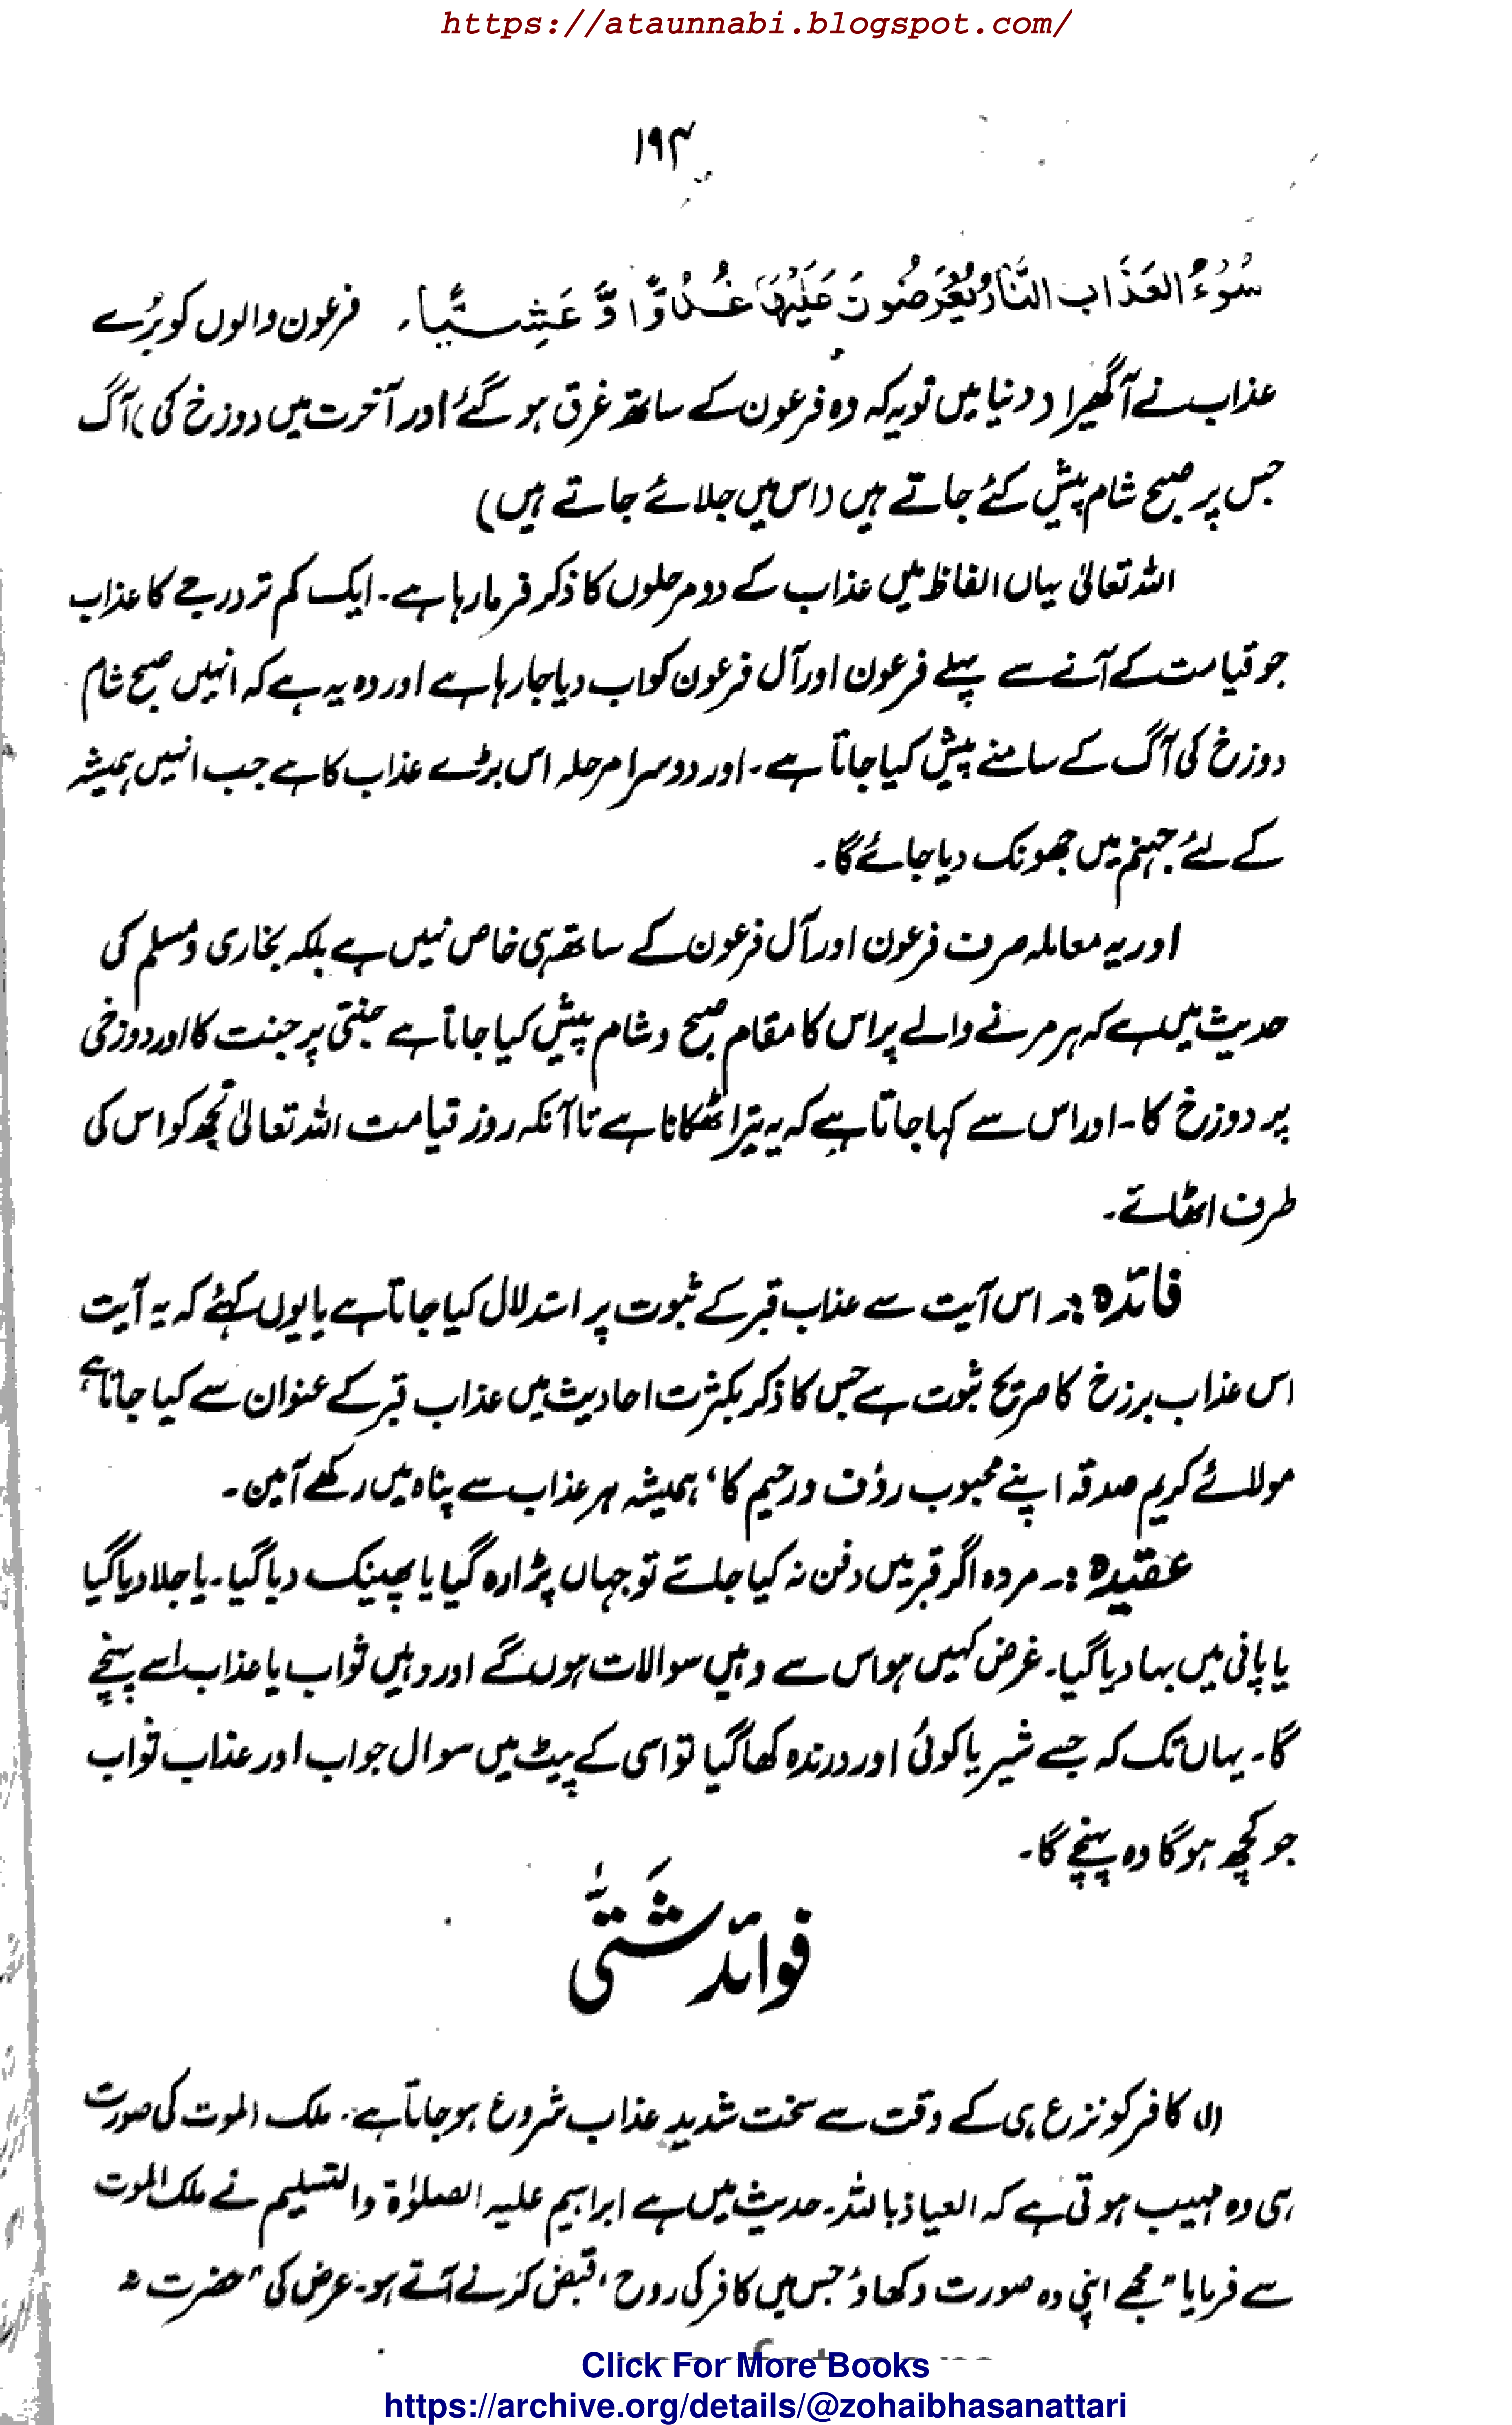 https://ataunnabi.blogspot.com/
۱۹۴
سُوْءُ الْعَذَابِ النَّارُ يُعْرَضُونَ عَلَيْهَا غُدُوًّا وَّ عَشِيًّا۔ فرعون والوں کو بُرے
عذاب نے آ گھیرا (دنیا میں تو یہ کہ وہ فرعون کے ساتھ غرق ہو گئے اور آخرت میں دوزخ کی) آگ
جس پر صبح شام پیش کئے جاتے ہیں (اس میں جلائے جاتے ہیں)
اللہ تعالیٰ یہاں الفاظ میں عذاب کے دو مرحلوں کا ذکر فرما رہا ہے۔ ایک کم تر درجے کا عذاب
جو قیامت کے آنے سے پہلے فرعون اور آل فرعون کو اب دیا جا رہا ہے اور وہ یہ ہے کہ انہیں صبح شام
دوزخ کی آگ کے سامنے پیش کیا جاتا ہے۔ اور دوسرا مرحلہ اس بڑے عذاب کا ہے جب انہیں ہمیشہ
کے لئے جہنم میں جھونک دیا جائے گا۔
اور یہ معاملہ صرف فرعون اور آل فرعون کے ساتھ ہی خاص نہیں ہے بلکہ بخاری و مسلم کی
حدیث میں ہے کہ ہر مرنے والے پر اس کا مقام صبح و شام پیش کیا جاتا ہے جنتی پر جنت کا اور دوزخی
پر دوزخ کا۔ اور اس سے کہا جاتا ہے کہ یہ تیرا ٹھکانا ہے تا آنکہ روز قیامت اللہ تعالیٰ تجھ کو اس کی
طرف اٹھائے۔
فائدہ :۔ اس آیت سے عذاب قبر کے ثبوت پر استدلال کیا جاتا ہے یا یوں کہئے کہ یہ آیت
اس عذاب برزخ کا صریح ثبوت ہے جس کا ذکر بکثرت احادیث میں عذاب قبر کے عنوان سے کیا جاتا ہے
مولائے کریم صدقہ اپنے محبوب رؤف و رحیم کا، ہمیشہ ہر عذاب سے پناہ میں رکھے آمین۔
عقیدہ :۔ مردہ اگر قبر میں دفن نہ کیا جائے تو جہاں پڑا رہ گیا یا پھینک دیا گیا۔ یا جلا دیا گیا
یا پانی میں بہا دیا گیا۔ غرض کہیں ہو اس سے وہیں سوالات ہوں گے اور وہیں ثواب یا عذاب اسے پہنچے
گا۔ یہاں تک کہ جسے شیر یا کوئی اور درندہ کھا گیا تو اسی کے پیٹ میں سوال جواب اور عذاب ثواب
جو کچھ ہو گا وہ پہنچے گا۔
فوائد شَتّٰی
(۱) کافر کو نزع ہی کے وقت سے سخت شدید عذاب شروع ہو جاتا ہے۔ ملک الموت کی صورت
ہی وہ مہیب ہوتی ہے کہ العیاذ باللہ۔ حدیث میں ہے ابراہیم علیہ الصلوٰۃ والتسلیم نے ملک الموت
سے فرمایا "مجھے اپنی وہ صورت دکھاؤ جس میں کافر کی روح، قبض کرنے آتے ہو۔ عرض کی "حضرت
Click For More Books
https://archive.org/details/@zohaibhasanattari